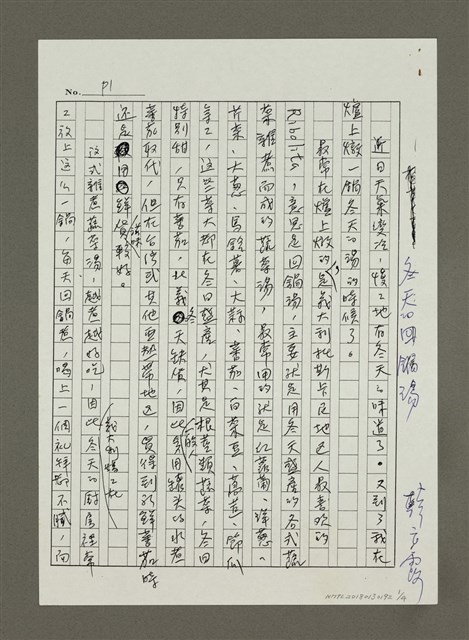 No. P1
冬天的回鍋湯
韓良露
近日天氣變冷，慢慢地有冬天的味道了。又到了我在
爐上燉一鍋冬天的湯的時候了。
我常在爐上燉的是義大利托斯卡尼地區人最喜歡的
Ribollita，意思是回鍋湯，主要就是用冬天盛產的各式蔬
菜雜煮而成的蔬菜湯，最常用的就是紅蘿蔔、洋蔥、
芹菜、大蔥、馬鈴薯、大蒜、蕃茄、白菜豆、萵苣、節瓜
等等，這些菜大都在冬日盛產，尤其是根莖類蔬菜，冬日
特別甜，只有蕃茄，北義冬天缺貨，因此一般人用罐頭的水煮
蕃茄取代，但在台灣或其他亞熱帶地區，買得到新鮮蕃茄時
還是用鮮貨滋味較好。
這式雜煮蔬菜湯，越煮越好吃，因此冬天的廚房裡常
義大利慢工
工放上這么一鍋，每天回鍋煮，喝上一個禮拜都不膩，因
NMTL20190130192 1/4